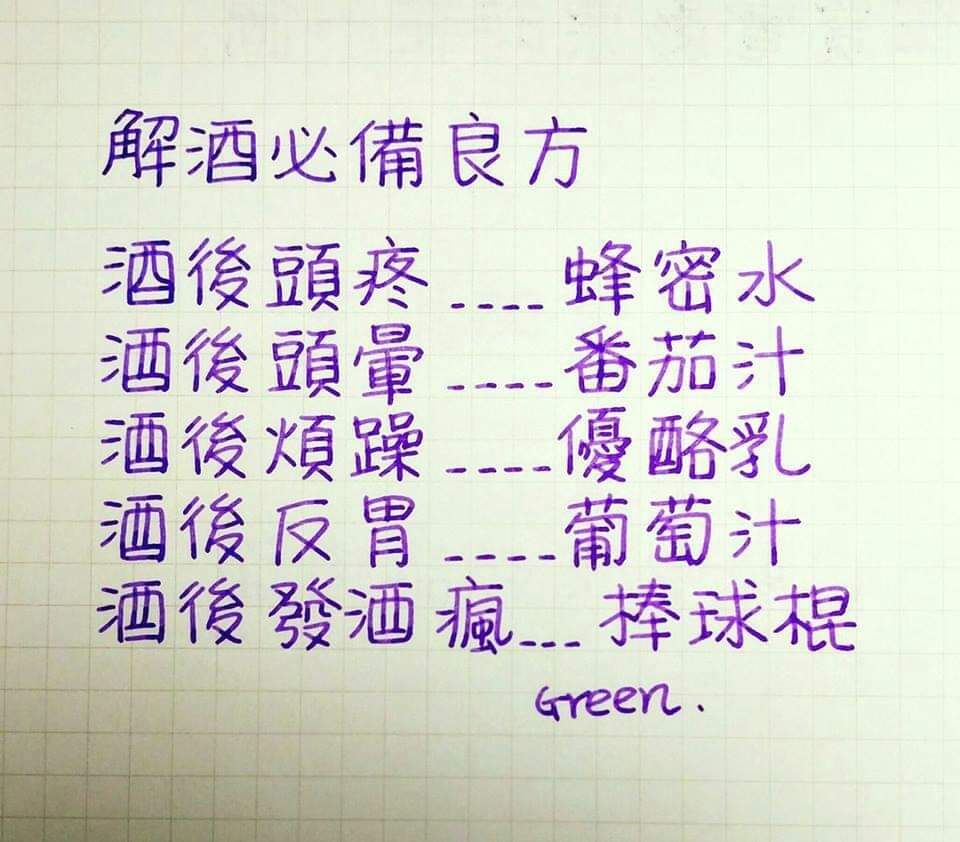 解酒必備良方
酒後頭疼----蜂密水
酒後頭暈----番茄汁
酒後煩躁----優酪乳
酒後反胃----葡萄汁
酒後發酒瘋---捧球棍
Green.